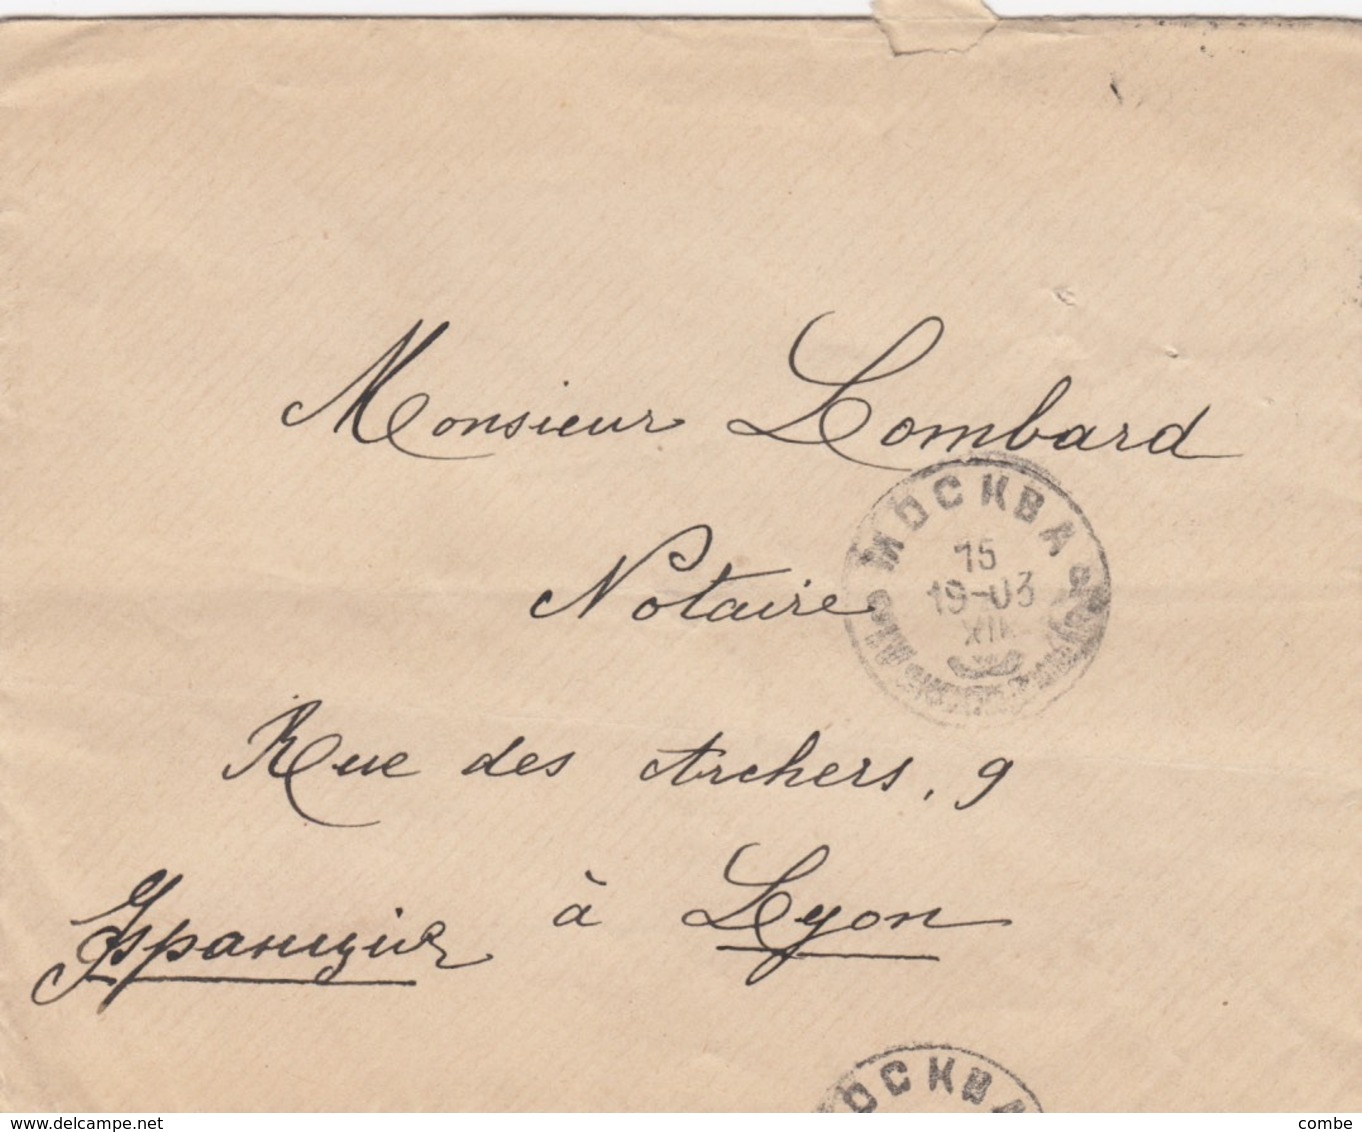 Monsieur Lombard
МОСКВА
15
19-03
XII
Notaire
Rue des Archers, 9
à Lyon
Францiя
МОСКВА
www.delcampe.net
combe